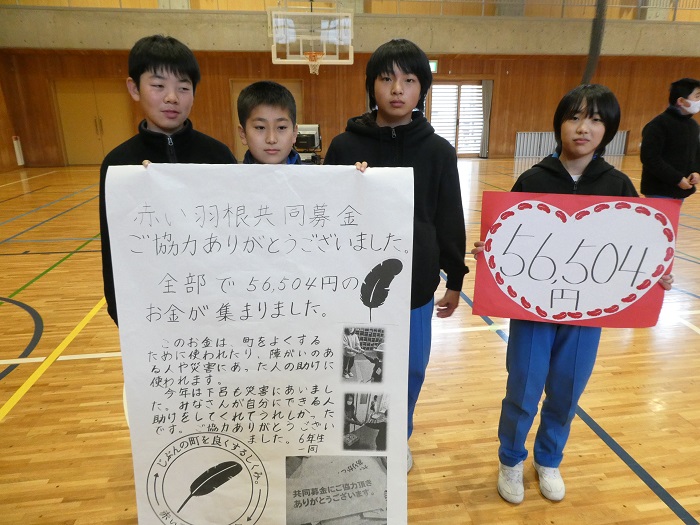 赤い羽根共同募金
ご協力ありがとうございました。
全部で56,504円の
お金が集まりました。
このお金は、町をよくする
ために使われたり、障がいのあ
る人や災害にあった人の助けに
使われます。
今年は下呂も災害にあいまし
た。みなさんが自分にできる人
助けをしてくれてうれしかった
です。ご協力ありがとうござい
ました。6年生
一同
じぶんの町を良くするしくみ。
共同募金にご協力頂き
ありがとうございます。
56,504
円